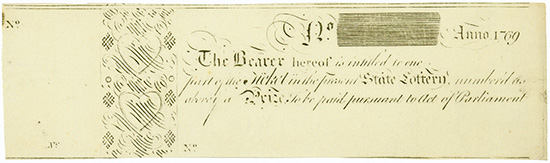 No. No. Anno 1769
The Bearer hereof is intitled to one
part of the Ticket in the present State Lottery, number'd as
above, if a Prize, to be paid pursuant to Act of Parliament
No. No.